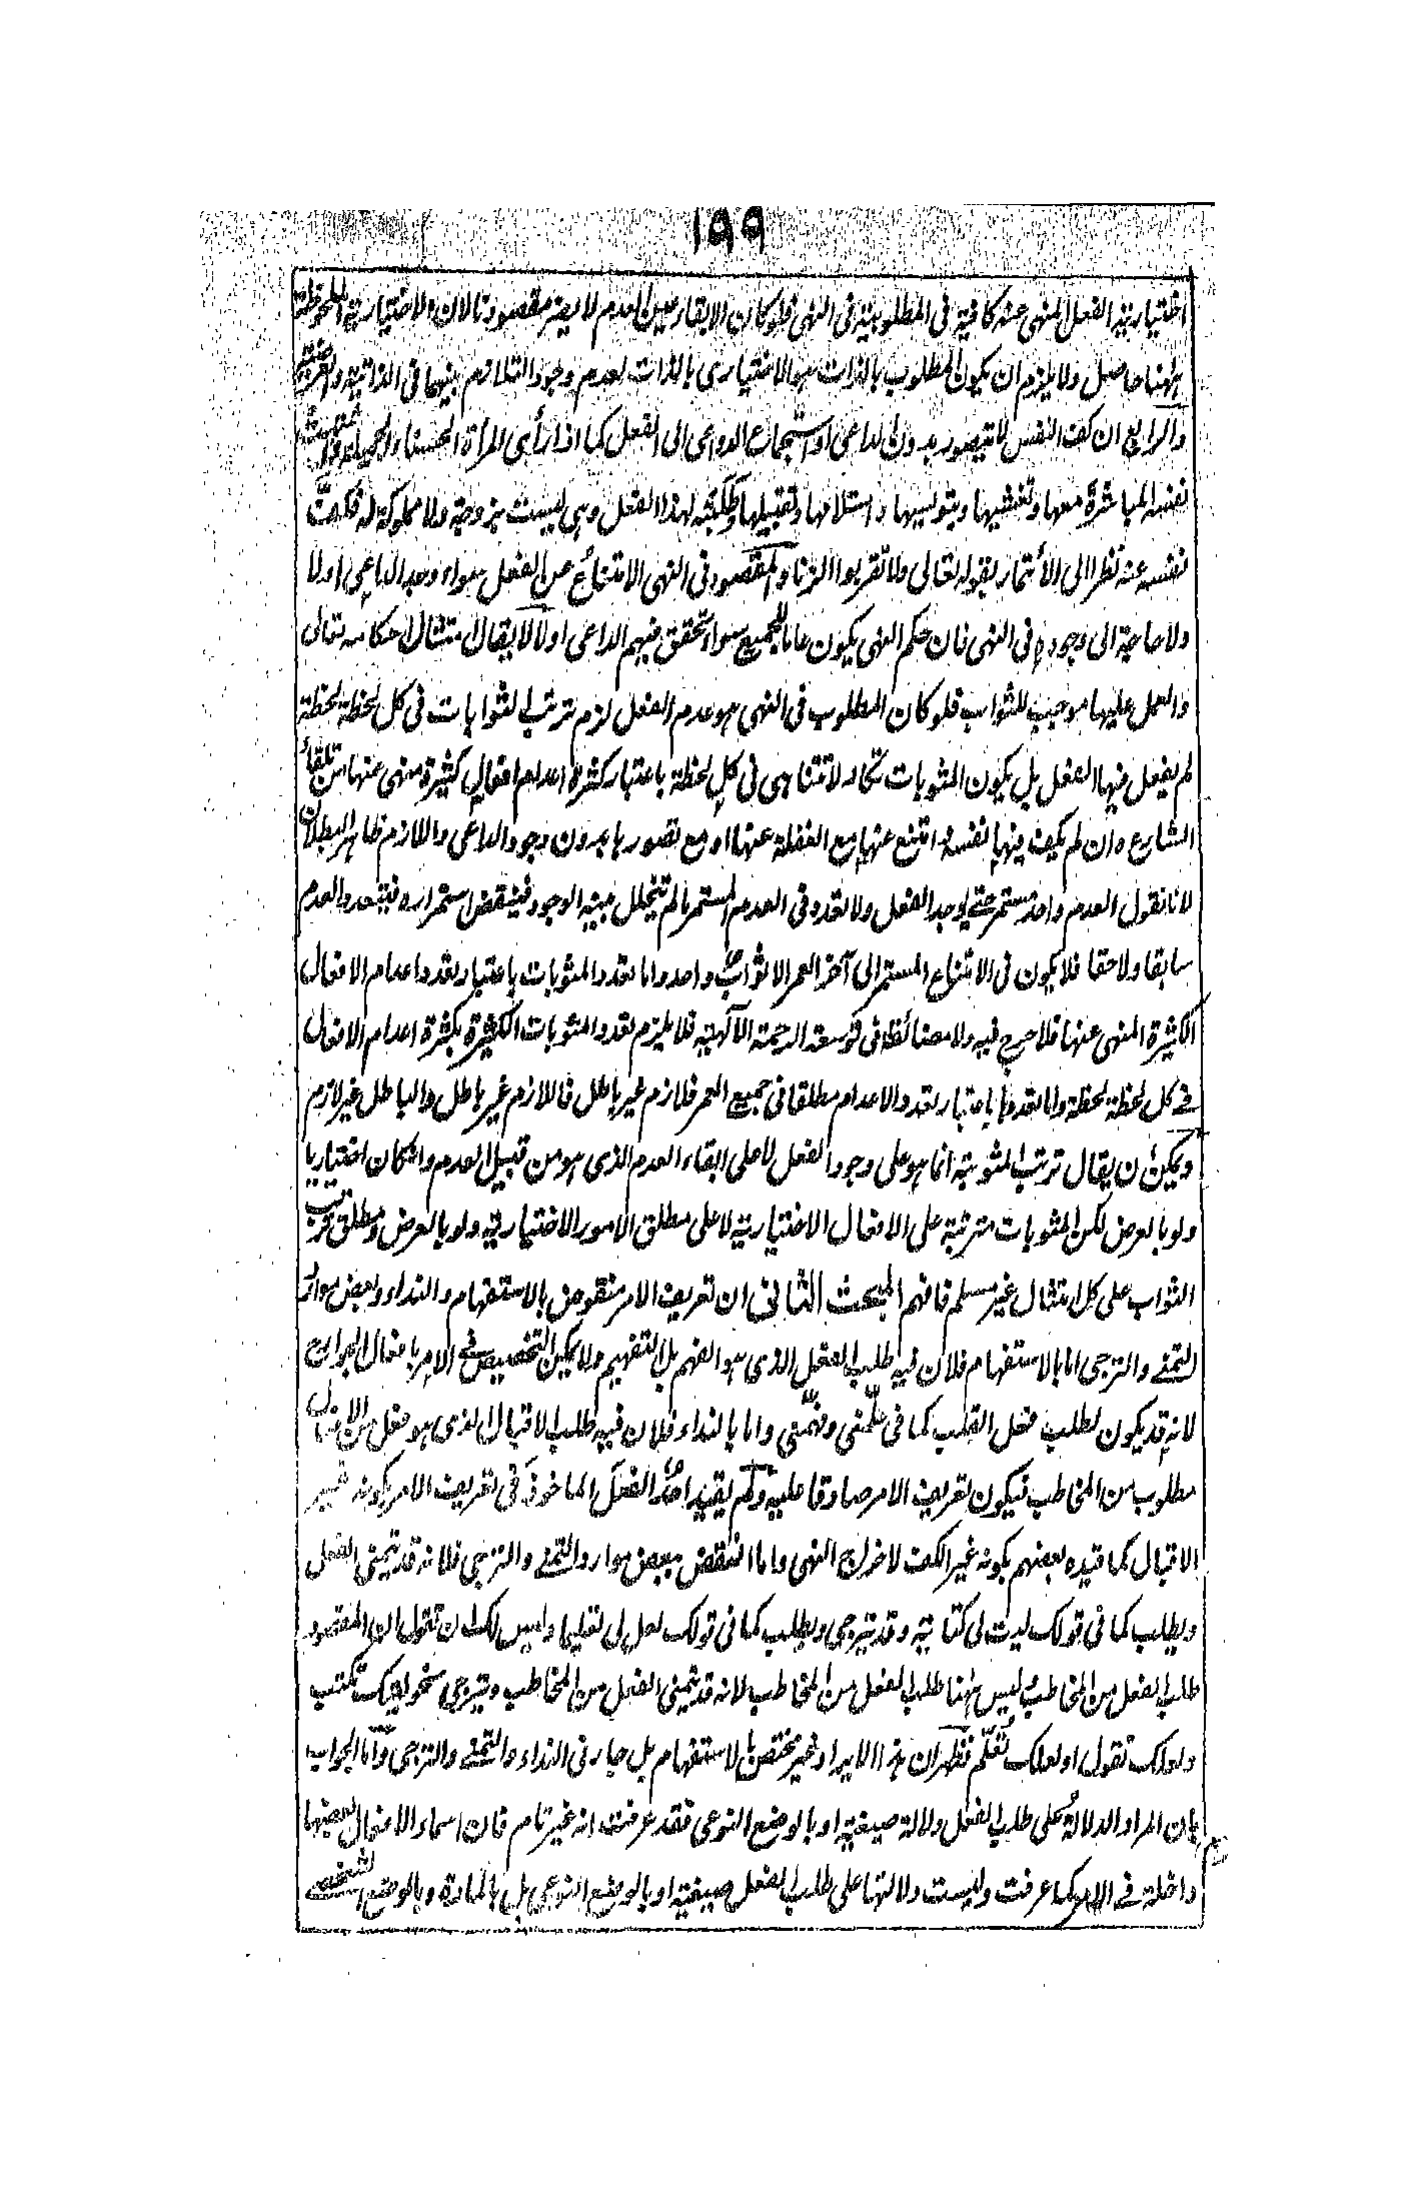 ١٩٩
اختيارية الفعل المنهى عنه كافية فى المطلوبية فى النهى فلو كان الابقاء عين العدم لا يضر مقصودنا لان الاختيارية الملحوظة
ههنا حاصل ولا يلزم ان يكون المطلوب بالذات هو الاختيارى بالذات لعدم وجود التلازم بينهما فى الذاتية والعرضية
والرابع ان كف النفس لا يتصور بدون الداعى او استجماع الدواعى الى الفعل كما اذا رأى المرأة الحسنا والجميلة واشتهت
نفسه المباشرة معها وتغشيها وتبوسيها واستلامها وتقبيلها وطلبته لهذا الفعل وهى ليست بزوجة ولا مملوكة له فكف
نفسه عنه نظرا الى الأئتمار بقوله تعالى ولا تقربوا الزنا والمقصود فى النهى الامتناع عن الفعل سواء وجد الداعى اولا
ولا حاجة الى وجوده فى النهى فان حكم النهى يكون عاما للجميع سواء تحقق فيهم الداعى اولا لا يقال امتثال احكامه تعالى
والعمل عليها موجب للثواب فلو كان المطلوب فى النهى هو عدم الفعل لزم ترتب الثوابات فى كل لحظة لحظة
لم يفعل فيها الفعل بل يكون المثوبات تكاد لا تتناهى فى كل لحظة باعتبار كثرة اعدام افعال كثيرة منهى عنها من تلقاء
الشارع وان لم يكف منها نفسه وامتنع عنها مع الغفلة عنها او مع تصورها بدون وجود الداعى واللازم ظاهر البطلان
لانا نقول العدم واحد مستمر حتى يوجد الفعل ولا تعدد فى العدم المستمر ما لم يتخلل بينه الوجود فينقض استمراره فيتعدد العدم
سابقا ولاحقا فلا يكون فى الامتناع المستمر الى آخر العمر الا ثواب واحد واما تعدد المثوبات باعتبار تعدد اعدام الافعال
الكثيرة المنهى عنها فلا حرج فيه ولا مضائقة فى توسعة الرحمة الآلهية فلا يلزم تعدد المثوبات الكثيرة بكثرة اعدام الافعال
فى كل لحظة لحظة واما تعددها باعتبار تعدد الاعدام مطلقا فى جميع العمر فلازم غير باطل فاللازم غير باطل والباطل غير لازم
ويمكن ان يقال ترتب المثوبة انما هو على وجود الفعل لا على ابقاء العدم الذى هو من قبيل العدم وان كان اختياريا
ولو بالعرض لكن المثوبات مترتبة على الافعال الاختيارية لا على مطلق الامور الاختيارية ولو بالعرض ومطلق ترتب
الثواب على كل امتثال غير مسلم فافهم المبحث الثانى ان تعريف الامر منقوض بالاستفهام والنداء وبعض موارد
التمنى والترجى اما بالاستفهام فلان فيه طلب الفعل الذى هو الفهم بل التفهيم ولا يمكن التخصيص فى الامر بافعال الجوارح
لانه قد يكون لطلب فعل القلب كما فى علّمنى وفهّمنى واما بالنداء فلان فيه طلب الاقبال الذى هو فعل من الافعال
مطلوب من المخاطب فيكون تعريف الامر صادقا عليه ولم يقيد احد الفعل الماخوذ فى تعريف الامر بكونه غير
الاقبال كما قيده بعضهم بكونه غير الكف لاخراج النهى واما النقض ببعض موارد التمنى والترجى فلانه قد يتمنى الفعل
ويطلب كما فى قولك ليت لى كتابة وقد يترجى ويطلب كما فى قولك لعل لى تعليما وليس لك ان تقول ان المقصود
طلب الفعل من المخاطب وليس ههنا طلب الفعل من المخاطب لانه قد يتمنى الفعل من المخاطب ويترجى نحو ليتك تكتب
ولعلك تقول او لعلك تعلّم فظهر ان هذا الايراد غير مختص بالاستفهام بل جار فى النداء والتمنى والترجى وأما الجواب
بان المراد الدلالة على طلب الفعل دلالة صيغية او بالوضع النوعى فقد عرفت انه غير تام فان اسماء الافعال بعضها
داخلة فى الامر كما عرفت وليست دلالتها على طلب الفعل صيغية او بالوضع النوعى بل بالمادة وبالوضع الشخصى